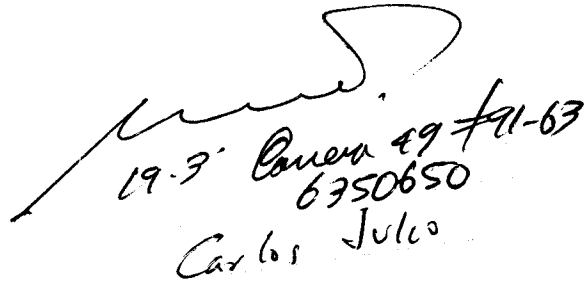 19-3' Carrera 49 #91-63
6350650
Carlos Julio